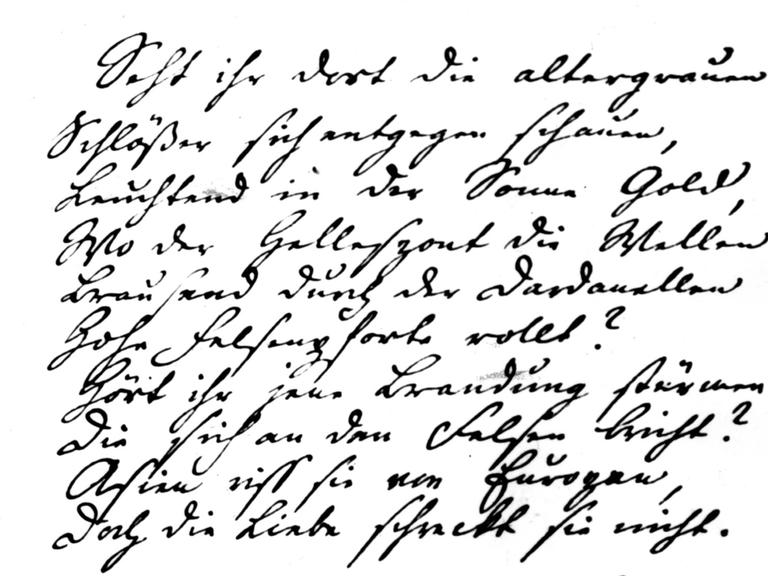 Seht ihr dort die altergrauen
Schlößer sich entgegen schauen,
Leuchtend in der Sonne Gold,
Wo der Hellespont die Wellen
Brausend durch der Dardanellen
Hohe Felsenpforte rollt?
Hört ihr jene Brandung stürmen
Die sich an den Felsen bricht?
Asien riss sie von Europen,
Doch die Liebe schreckt sie nicht.